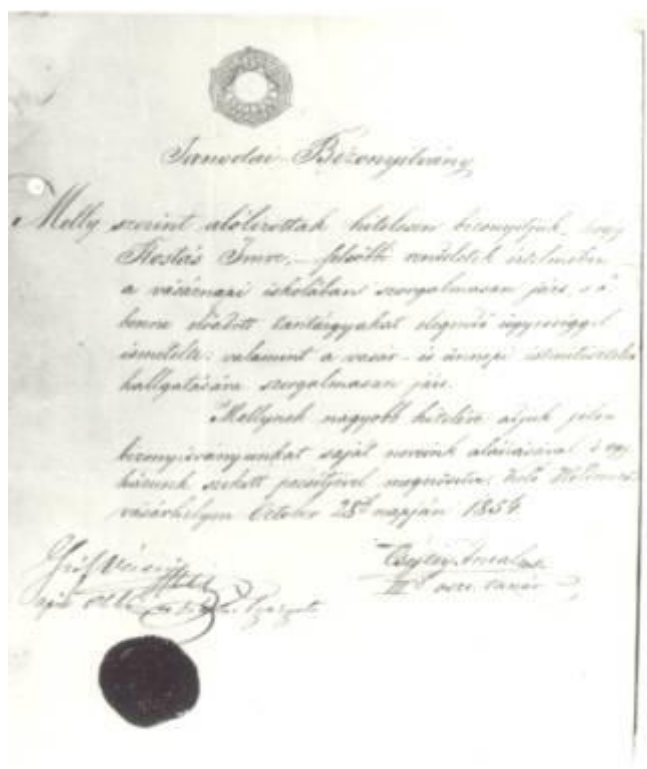 Tanodai Bizonyitvány
Melly szerint alólirottak hitelesen bizonyitjuk, hogy
Rostás Imre, felsőbb rendeletek értelmében
a vásárnapi iskolában szorgalmasan járt, s a
benne előadott tantárgyakat elegendő ügyességgel
ismételte; valamint a vasár- és ünnepi istentisztelet
hallgatására szorgalmasan járt.
Mellynek nagyobb hitelére adjuk jelen
bizonyitványunkat saját neveink aláirásával s
pecsétjével megerősitve. Kelt
vásárhelyen October 28 napján 1854.